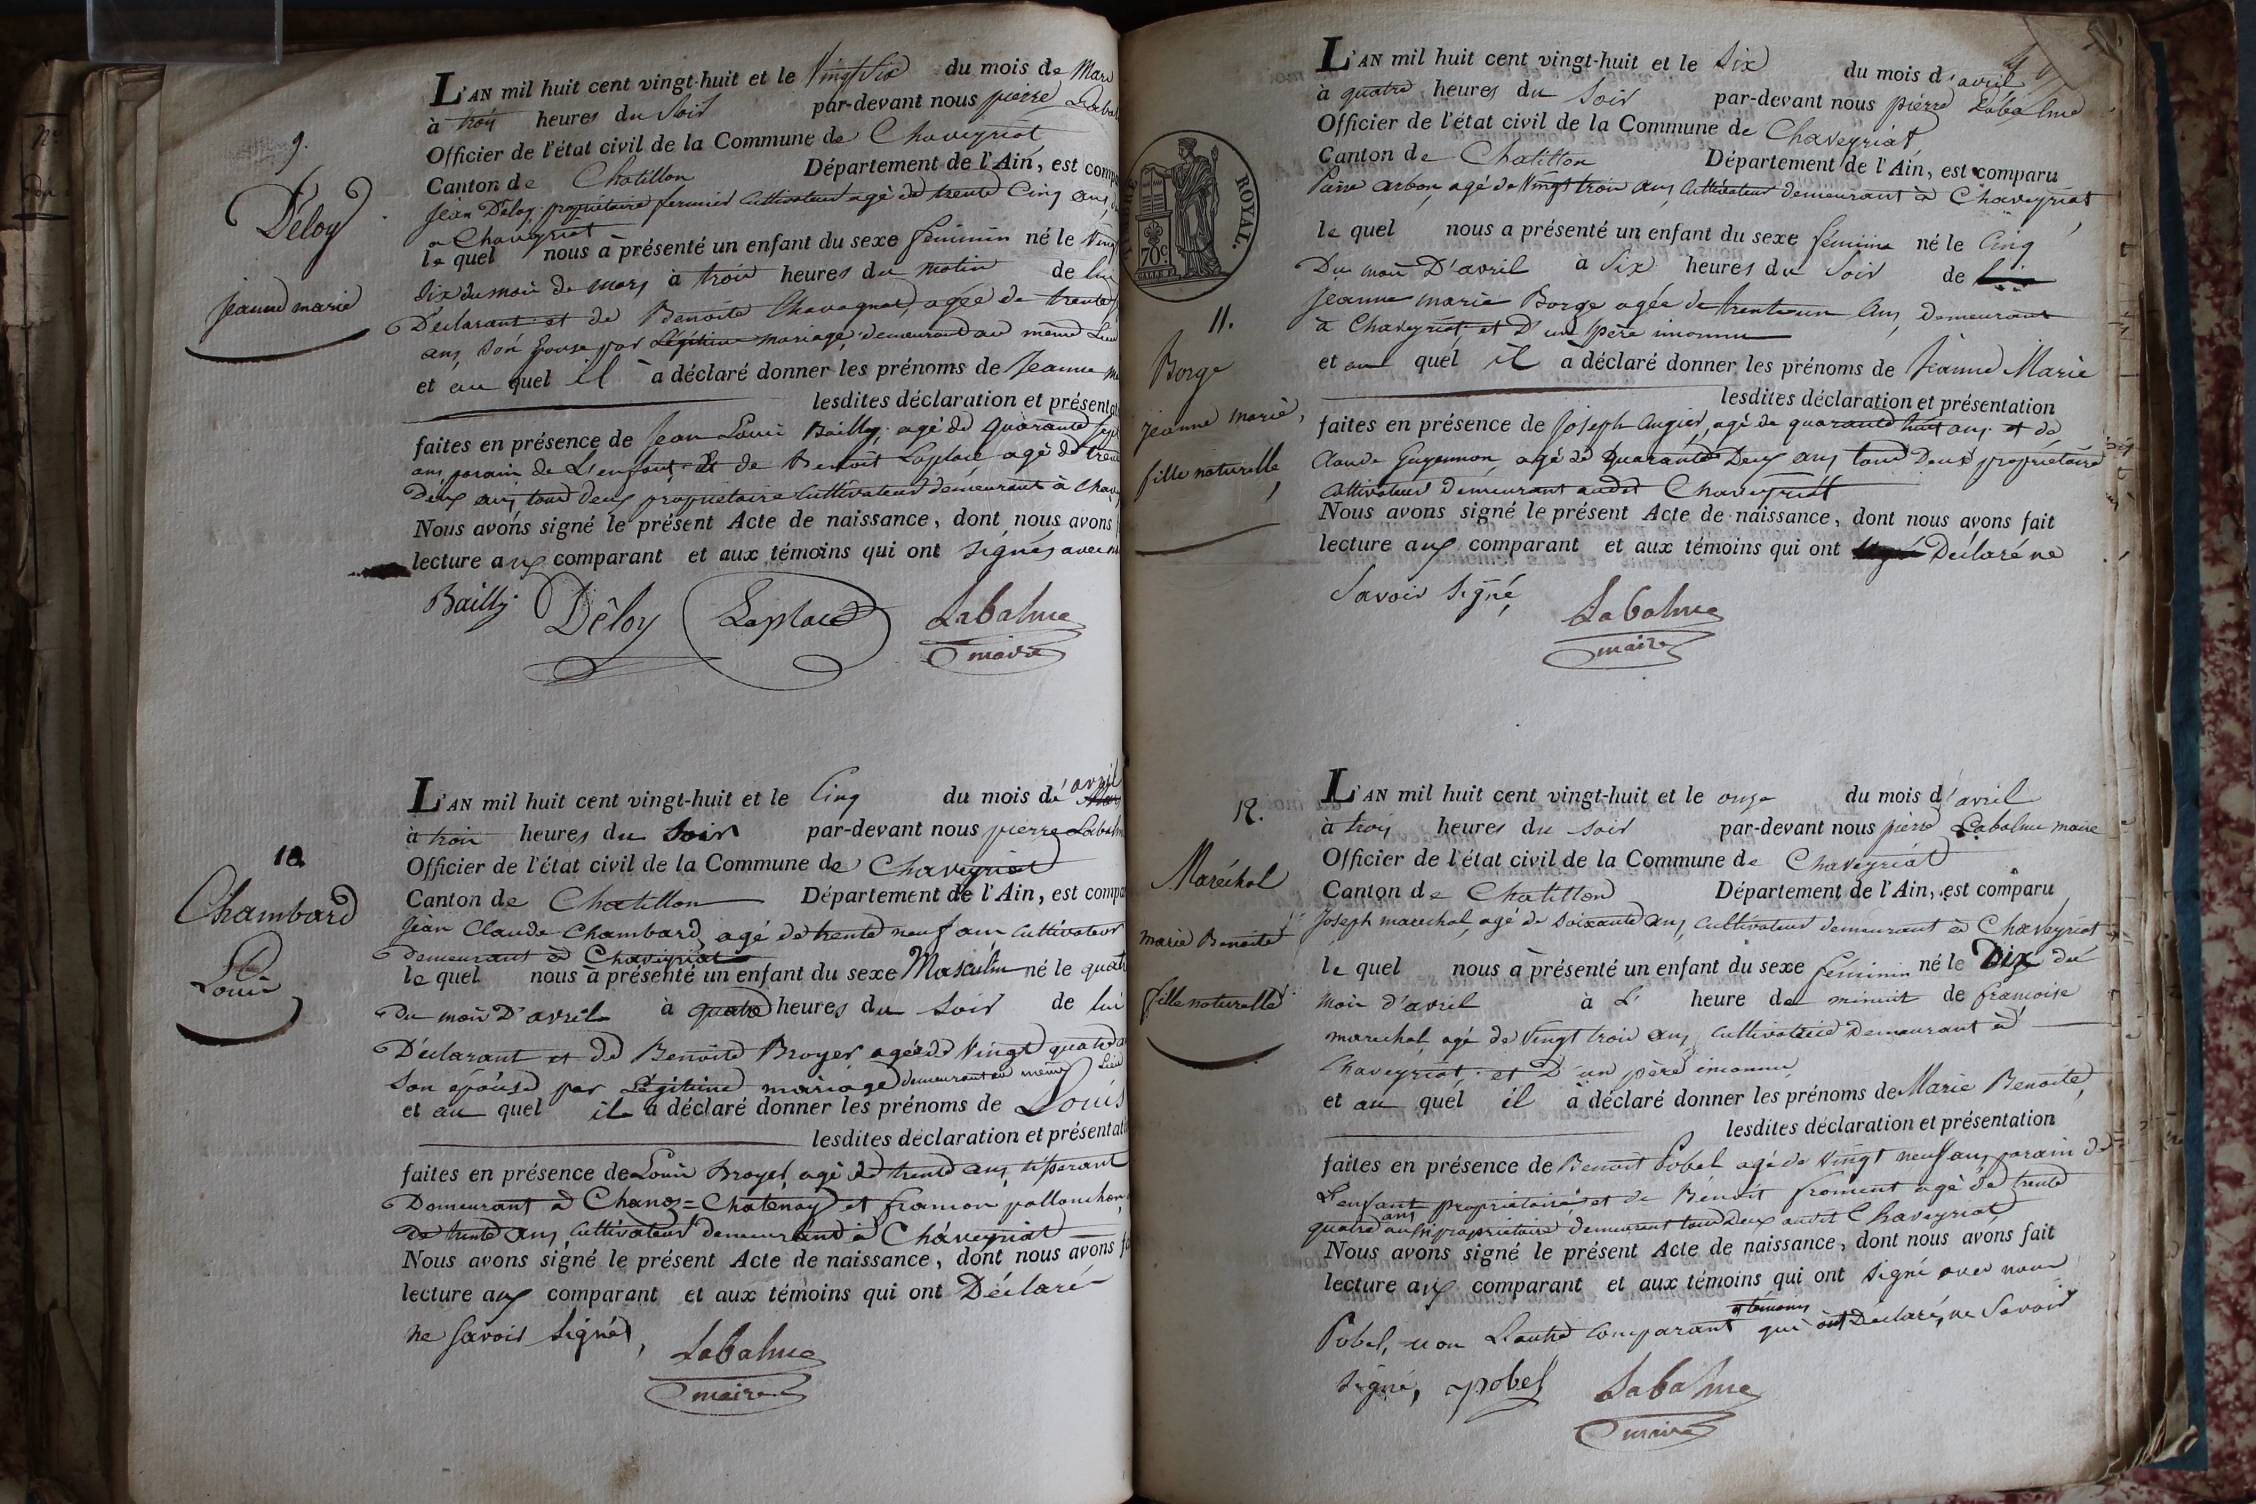 9.
Déloy
jeanne marie
L'AN mil huit cent vingt-huit et le Vingt Six du mois de Mars
à trois heures du Soir par-devant nous pierre Labal
Officier de l'état civil de la Commune de Chaveyriat
Canton de Chatillon Département de l'Ain, est compa
Jean Déloy propriétaire fermier Cultivateur agé de trente Cinq ans,
a Chaveyriat
le quel nous à présenté un enfant du sexe féminin né le Vingt
Six du mois de mars à trois heures du matin de lui
Déclarant et de Benoite Chavagnat, agée de trente
ans, Son Epouse par Légitime mariage, demeurant au même Lieu
et au quel il a déclaré donner les prénoms de Jeanne
lesdites déclaration et présentat
faites en présence de Jean Louis Bailly, agé de quarante sept
ans, parain de L'enfant, Et de Benoit Laplace agé de trente
Deux ans, tous deux propriétaire Cultivateurs demeurant à Chav
Nous avons signé le présent Acte de naissance, dont nous avons f
lecture aux comparant et aux témoins qui ont Signés avec
Bailly Déloy Laplace Labalme
maire
10.
Chambard
Louis
L'AN mil huit cent vingt-huit et le Cinq du mois d'avril
à trois heures du Soir par-devant nous pierre Labalm
Officier de l'état civil de la Commune de Chaveyriat
Canton de Chatillon Département de l'Ain, est compa
Jean Claude Chambard, agé de trente neuf ans Cultivateur
Demeurant à Chaveyriat
le quel nous à présenté un enfant du sexe Masculin né le quatre
Du mois D'avril à quatre heures du Soir de lui
Déclarant et de Benoite Broyer agée de Vingt quatre a
Son épouse par Légitime mariage demeurant au même Lieu
et au quel il a déclaré donner les prénoms de Louis
lesdites déclaration et présentati
faites en présence de Louis Broyer, agé de trente ans, tisserant
Demeurant à Chanoz=Chatenay et francois pallanchon,
de trente ans, Cultivateur demeurant à Chaveyriat
Nous avons signé le présent Acte de naissance, dont nous avons fa
lecture aux comparant et aux témoins qui ont Déclaré
ne Savoir Signés,
Labalme
maire
TIMBRE ROYAL.
70c
11.
Borge
jeanne marie,
fille naturelle
L'AN mil huit cent vingt-huit et le Six du mois d'avril
à quatre heures du Soir par-devant nous pierre Labalme
Officier de l'état civil de la Commune de Chaveyriat
Canton de Chatillon Département de l'Ain, est comparu
Pierre arbon, agé de Vingt trois ans, Cultivateur demeurant à Chaveyriat
le quel nous a présenté un enfant du sexe féminin né le Cinq
Du mois D'avril à Six heures du Soir de lui
jeanne marie Borge agée de trente un ans, Demeurant
à Chaveyriat, et D'un père inconnu
et au quel il a déclaré donner les prénoms de Jeanne Marie
lesdites déclaration et présentation
faites en présence de Joseph Augier, agé de quarante huit ans et de
Claude Guyennon, agé de quarante Deux ans, tous Deux propriétaire
Cultivateurs demeurant audit Chaveyriat
Nous avons signé le présent Acte de naissance, dont nous avons fait
lecture aux comparant et aux témoins qui ont Déclaré ne
Savoir Signé,
Labalme
maire
12.
Maréchal
marie Benoite
fille naturelle
L'AN mil huit cent vingt-huit et le onze du mois d'avril
à trois heures du soir par-devant nous pierre Labalme maire
Officier de l'état civil de la Commune de Chaveyriat
Canton de Chatillon Département de l'Ain, est comparu
Joseph marechal, agé de soixante ans, Cultivateur demeurant à Chaveyriat
le quel nous à présenté un enfant du sexe féminin né le Dix du
mois d'avril à L' heure de minuit de francoise
marechal, agé de Vingt trois ans, cultivatrice Demeurant à
Chaveyriat, et D'un père inconnu,
et au quel il à déclaré donner les prénoms de Marie Benoite,
lesdites déclaration et présentation
faites en présence de Benoit Pobel agé de Vingt neuf ans, parain de
L'enfant propriétaire, et de Benoit froment agé de trente
quatre ans aussi propriétaire demeurant tous Deux audit Chaveyriat,
Nous avons signé le présent Acte de naissance, dont nous avons fait
lecture aux comparant et aux témoins qui ont Signé avec nous
Pobel, non L'autre comparant et témoins qui ont Déclaré, ne Savoir
Signé, pobel Labalme
maire